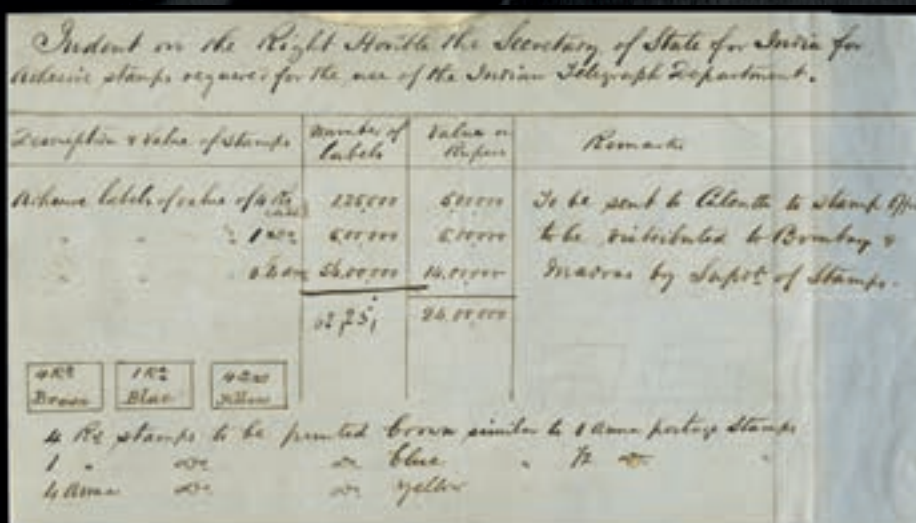 Indent on the Right Honble the Secretary of State for India for
Adhesive stamps required for the use of the Indian Telegraph Department.
Description & Value of Stamps Number of Labels Value in Rupees Remarks
Adhesive labels of value of 4 Rs 5,00,000 To be sent to Calcutta to Stamp Office
" " 1 5,00,000 5,00,000 to be distributed to Bombay &
4 56,00,000 14,00,000 Madras by Supdt of Stamps.
62,25, 24,00,000
4 Rs Brown 1 Rs Blue 4 ans Yellow
4 Rs stamps to be printed brown similar to 1 Anna postage Stamps
1 " do do blue " ½ do "
4 Anna do do yellow